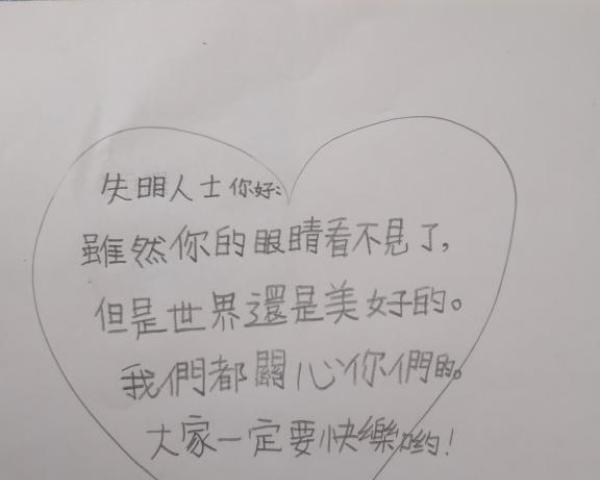 失明人士你好:
雖然你的眼睛看不見了,
但是世界還是美好的。
我們都關心你們的。
大家一定要快樂喲!